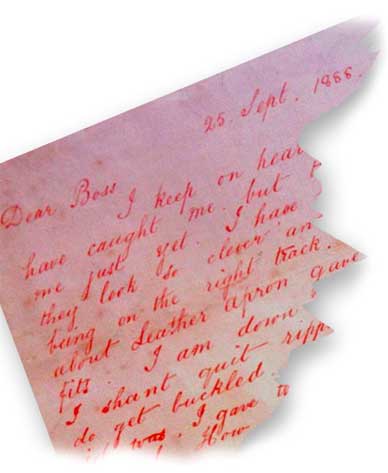 25. Sept. 1888.
Dear Boss
I keep on hear
have caught me but
me just yet. I have
they look so clever an
being on the right track.
about Leather Apron gave
fits. I am down
I shant quit ripp
do get buckled.
was. I gave
How